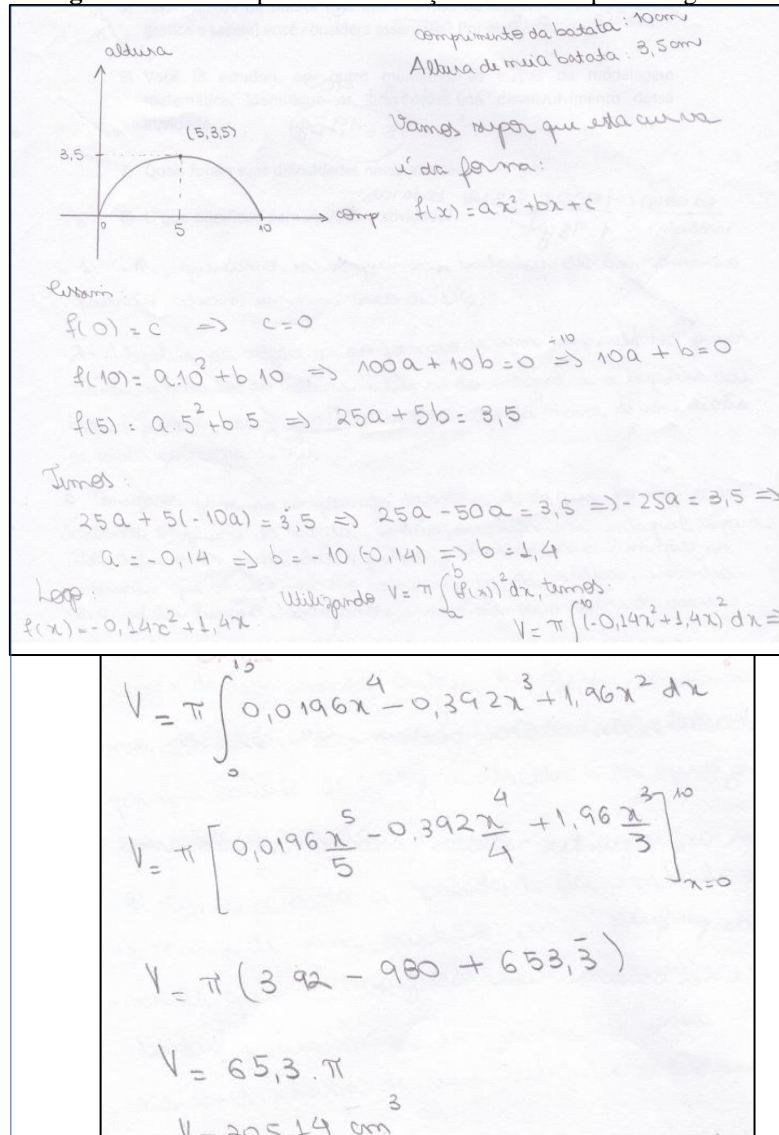 altura
comprimento da batata: 10cm
Altura de meia batata: 3,5cm
(5,3,5)
Vamos supor que esta curva
é da forma:
3,5
f(x) = ax² + bx + c
0 5 10 comp
Assim:
f(0) = c => c = 0
f(10) = a.10² + b.10 => 100a + 10b = 0 ÷10 => 10a + b = 0
f(5) = a.5² + b.5 => 25a + 5b = 3,5
Temos:
25a + 5(-10a) = 3,5 => 25a - 50a = 3,5 => -25a = 3,5 =>
a = -0,14 => b = -10(-0,14) => b = 1,4
Logo:
Utilizando V = π ∫ₐᵇ (f(x))² dx, temos:
f(x) = -0,14x² + 1,4x.
V = π ∫ ¹⁰ (-0,14x² + 1,4x)² dx =>
V = π ∫₀¹⁰ 0,0196x⁴ - 0,392x³ + 1,96x² dx
V = π [0,0196 x⁵/5 - 0,392 x⁴/4 + 1,96 x³/3]¹⁰ x=0
V = π (392 - 980 + 653,3̄)
V = 65,3.π
V = 205,14 cm³